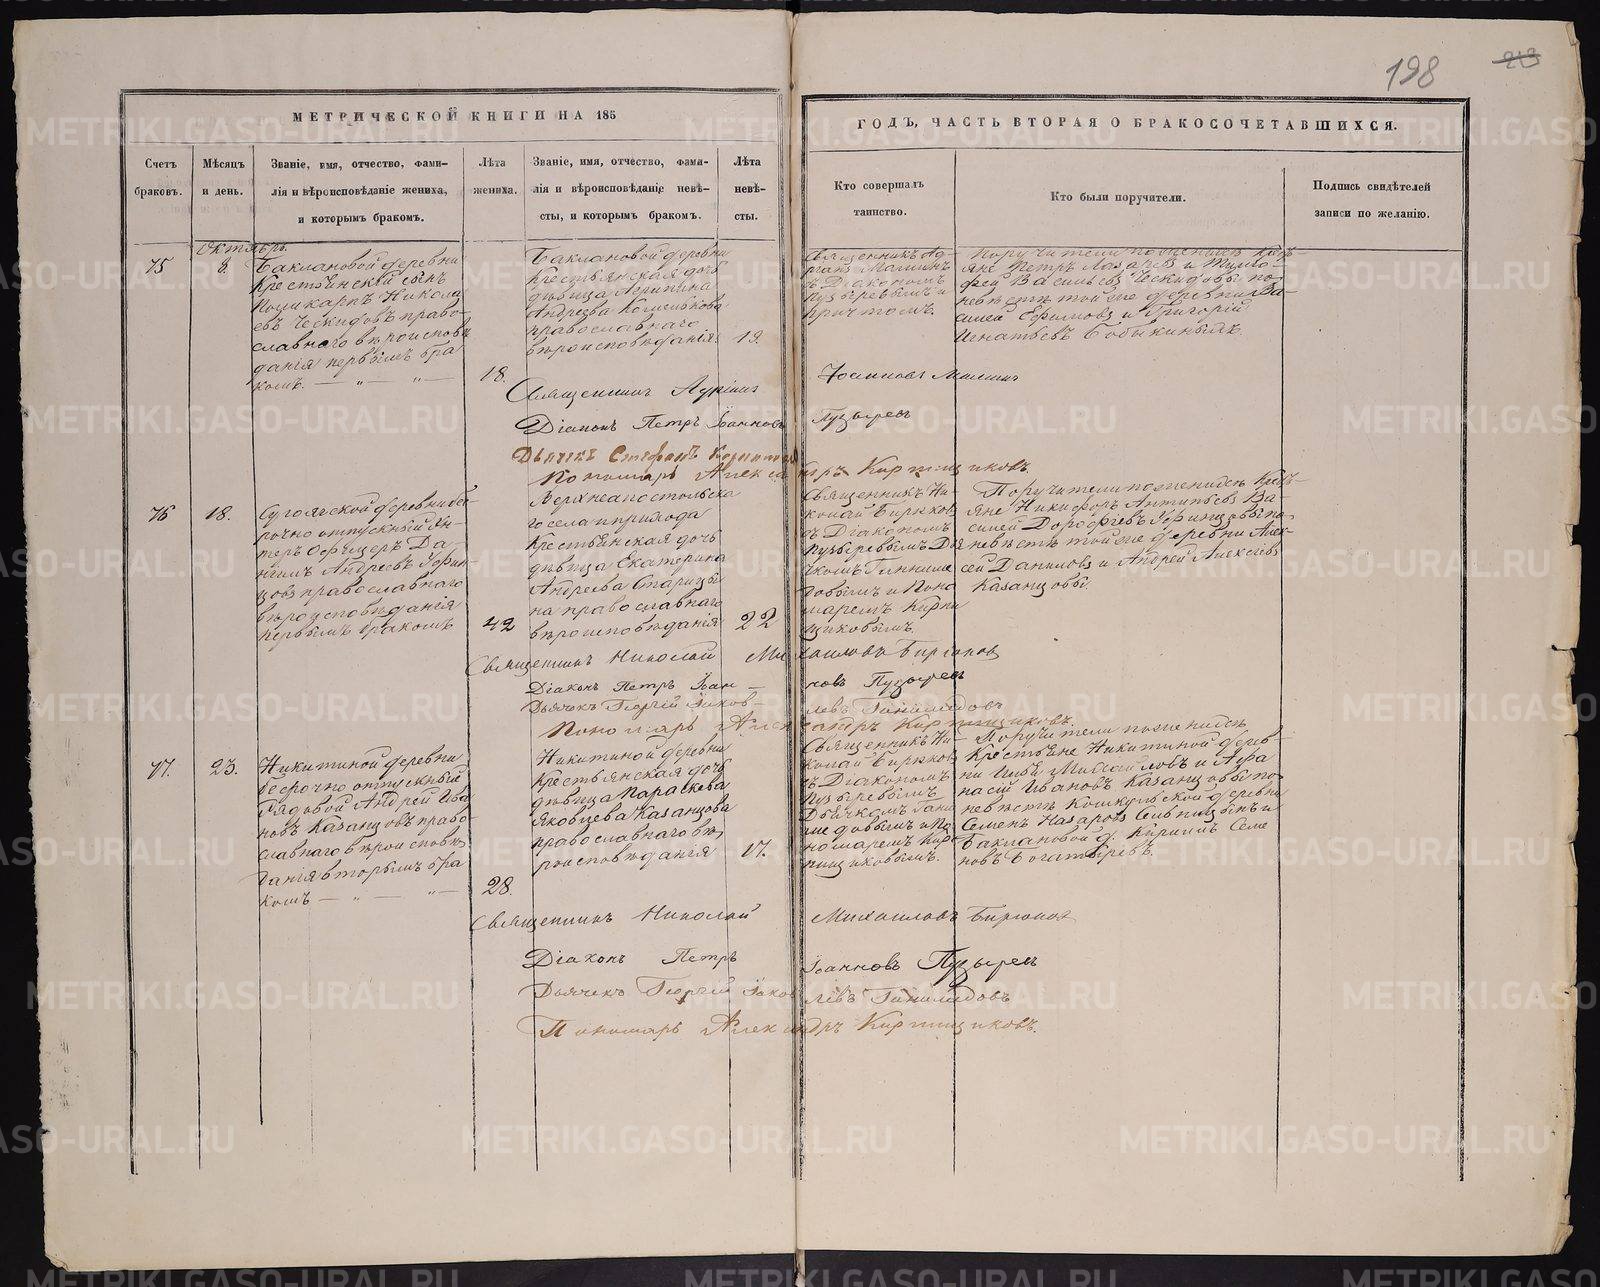 198
213
МЕТРИЧЕСКОЙ КНИГИ НА 185
ГОДЪ, ЧАСТЬ ВТОРАЯ О БРАКОСОЧЕТАВШИХСЯ.
Счетъ
браковъ.
Мѣсяцъ
и день.
Званіе, имя, отчество, фами-
лія и вѣроисповѣданіе жениха,
и которымъ бракомъ.
Лѣта
жениха.
Званіе, имя, отчество, фами-
лія и вѣроисповѣданіе невѣ-
сты, и которымъ бракомъ.
Лѣта
невѣ-
сты.
Кто совершалъ
таинство.
Кто были поручители.
Подпись свидѣтелей
записи по желанію.
Октябрь.
75
8.
Баклановой деревни
Крестьянскій сынъ
Поликарпъ Никола
евъ Ческидовъ право-
славнаго вѣроисповѣ
данія первымъ бра
комъ. — „ — „ —
18.
Баклановой деревни
Крестьянская дочь
дѣвица Агрипина
Андреева Кошелькова
православнаго
вѣроисповѣданія
19.
Священникъ Ад-
ріанъ Малинъ
съ Діакономъ
Пузыревымъ и
причтомъ.
Поручители по женихѣ Кресть-
яне Петръ Лазаревъ и Тимо-
фей Васильевъ Ческидовы по
невѣстѣ той же деревни Ва-
силей Ефимовъ и Григорій
Игнатьевъ Бабыкины.
Священникъ Адріанъ Іоанновъ Малинъ
Діаконъ Петръ Іоанновъ Пузыревъ
Дьячекъ Стефанъ
Пономарь Александръ Кирпищиковъ
76
18.
Сугоякской деревни без-
рочно отпускный Ун-
теръ Офицеръ Да-
нилъ Андреевъ Уфин
цовъ православнаго
вѣроисповѣданія
первымъ бракомъ
42
Верхнеапостольска
го села и прихода
Крестьянская дочь
дѣвица Екатерина
Андреева Старицы
на православнаго
вѣроисповѣданія
22
Священникъ Ни-
колай Бирюков
съ Діакономъ
Пузыревымъ Дья
чкомъ Ганиме
довымъ и Поно
маремъ Кирпи
щиковымъ.
Поручители по женихѣ Кресть-
яне Никифоръ Антипьевъ Ва-
силей Дорофѣевъ Уфинцовы по
невѣстѣ той же деревни Алек-
сей Даниловъ и Андрей Алексѣевъ
Казанцовы.
Священникъ Николай Михаиловъ Бирюков
Діаконъ Петръ Іоанновъ Пузырев
Дьячекъ Георгій Іаковлевъ Ганимедовъ
Пономарь Александръ Кирпищиковъ.
77.
23.
Никитиной деревни
безсрочно отпускный
Рядовой Андрей Ива
новъ Казанцовъ право-
славнаго вѣроисповѣ
данія вторымъ бра
комъ — „ — „ —
28.
Никитиной деревни
Крестьянская дочь
дѣвица Параскева
Яковлева Казанцова
православнаго вѣ
роисповѣданія
17.
Священникъ Ни-
колай Бирюков
съ Діакономъ
Пузыревымъ
Дьячкомъ Гани
медовымъ и По
номаремъ Кир
пищиковымъ.
Поручители по женихѣ
Крестьяне Никитиной дерев-
ни Илья Михайловъ и Афа
насій Ивановъ Казанцовы по
невѣстѣ Кошкульской деревни
Семенъ Назаровъ Сильницынъ и
Баклановой д. Кирилъ Семе
новъ Богатыревъ.
Священникъ Николай Михаиловъ Бирюков
Діаконъ Петръ Іоанновъ Пузырев
Дьячекъ Георгій Іаковлевъ Ганимедовъ
Пономарь Александръ Кирпищиковъ.
METRIKI.GASO-URAL.RU